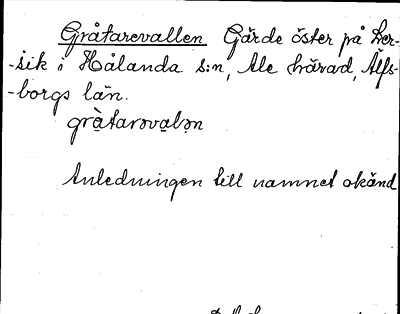 Gråtarevallen Gärde öster på Ler-
-sik i Hålanda s:n, Ale härad, Älfs-
-borgs län.
gràtarəvalən
Anledningen till namnet okänd